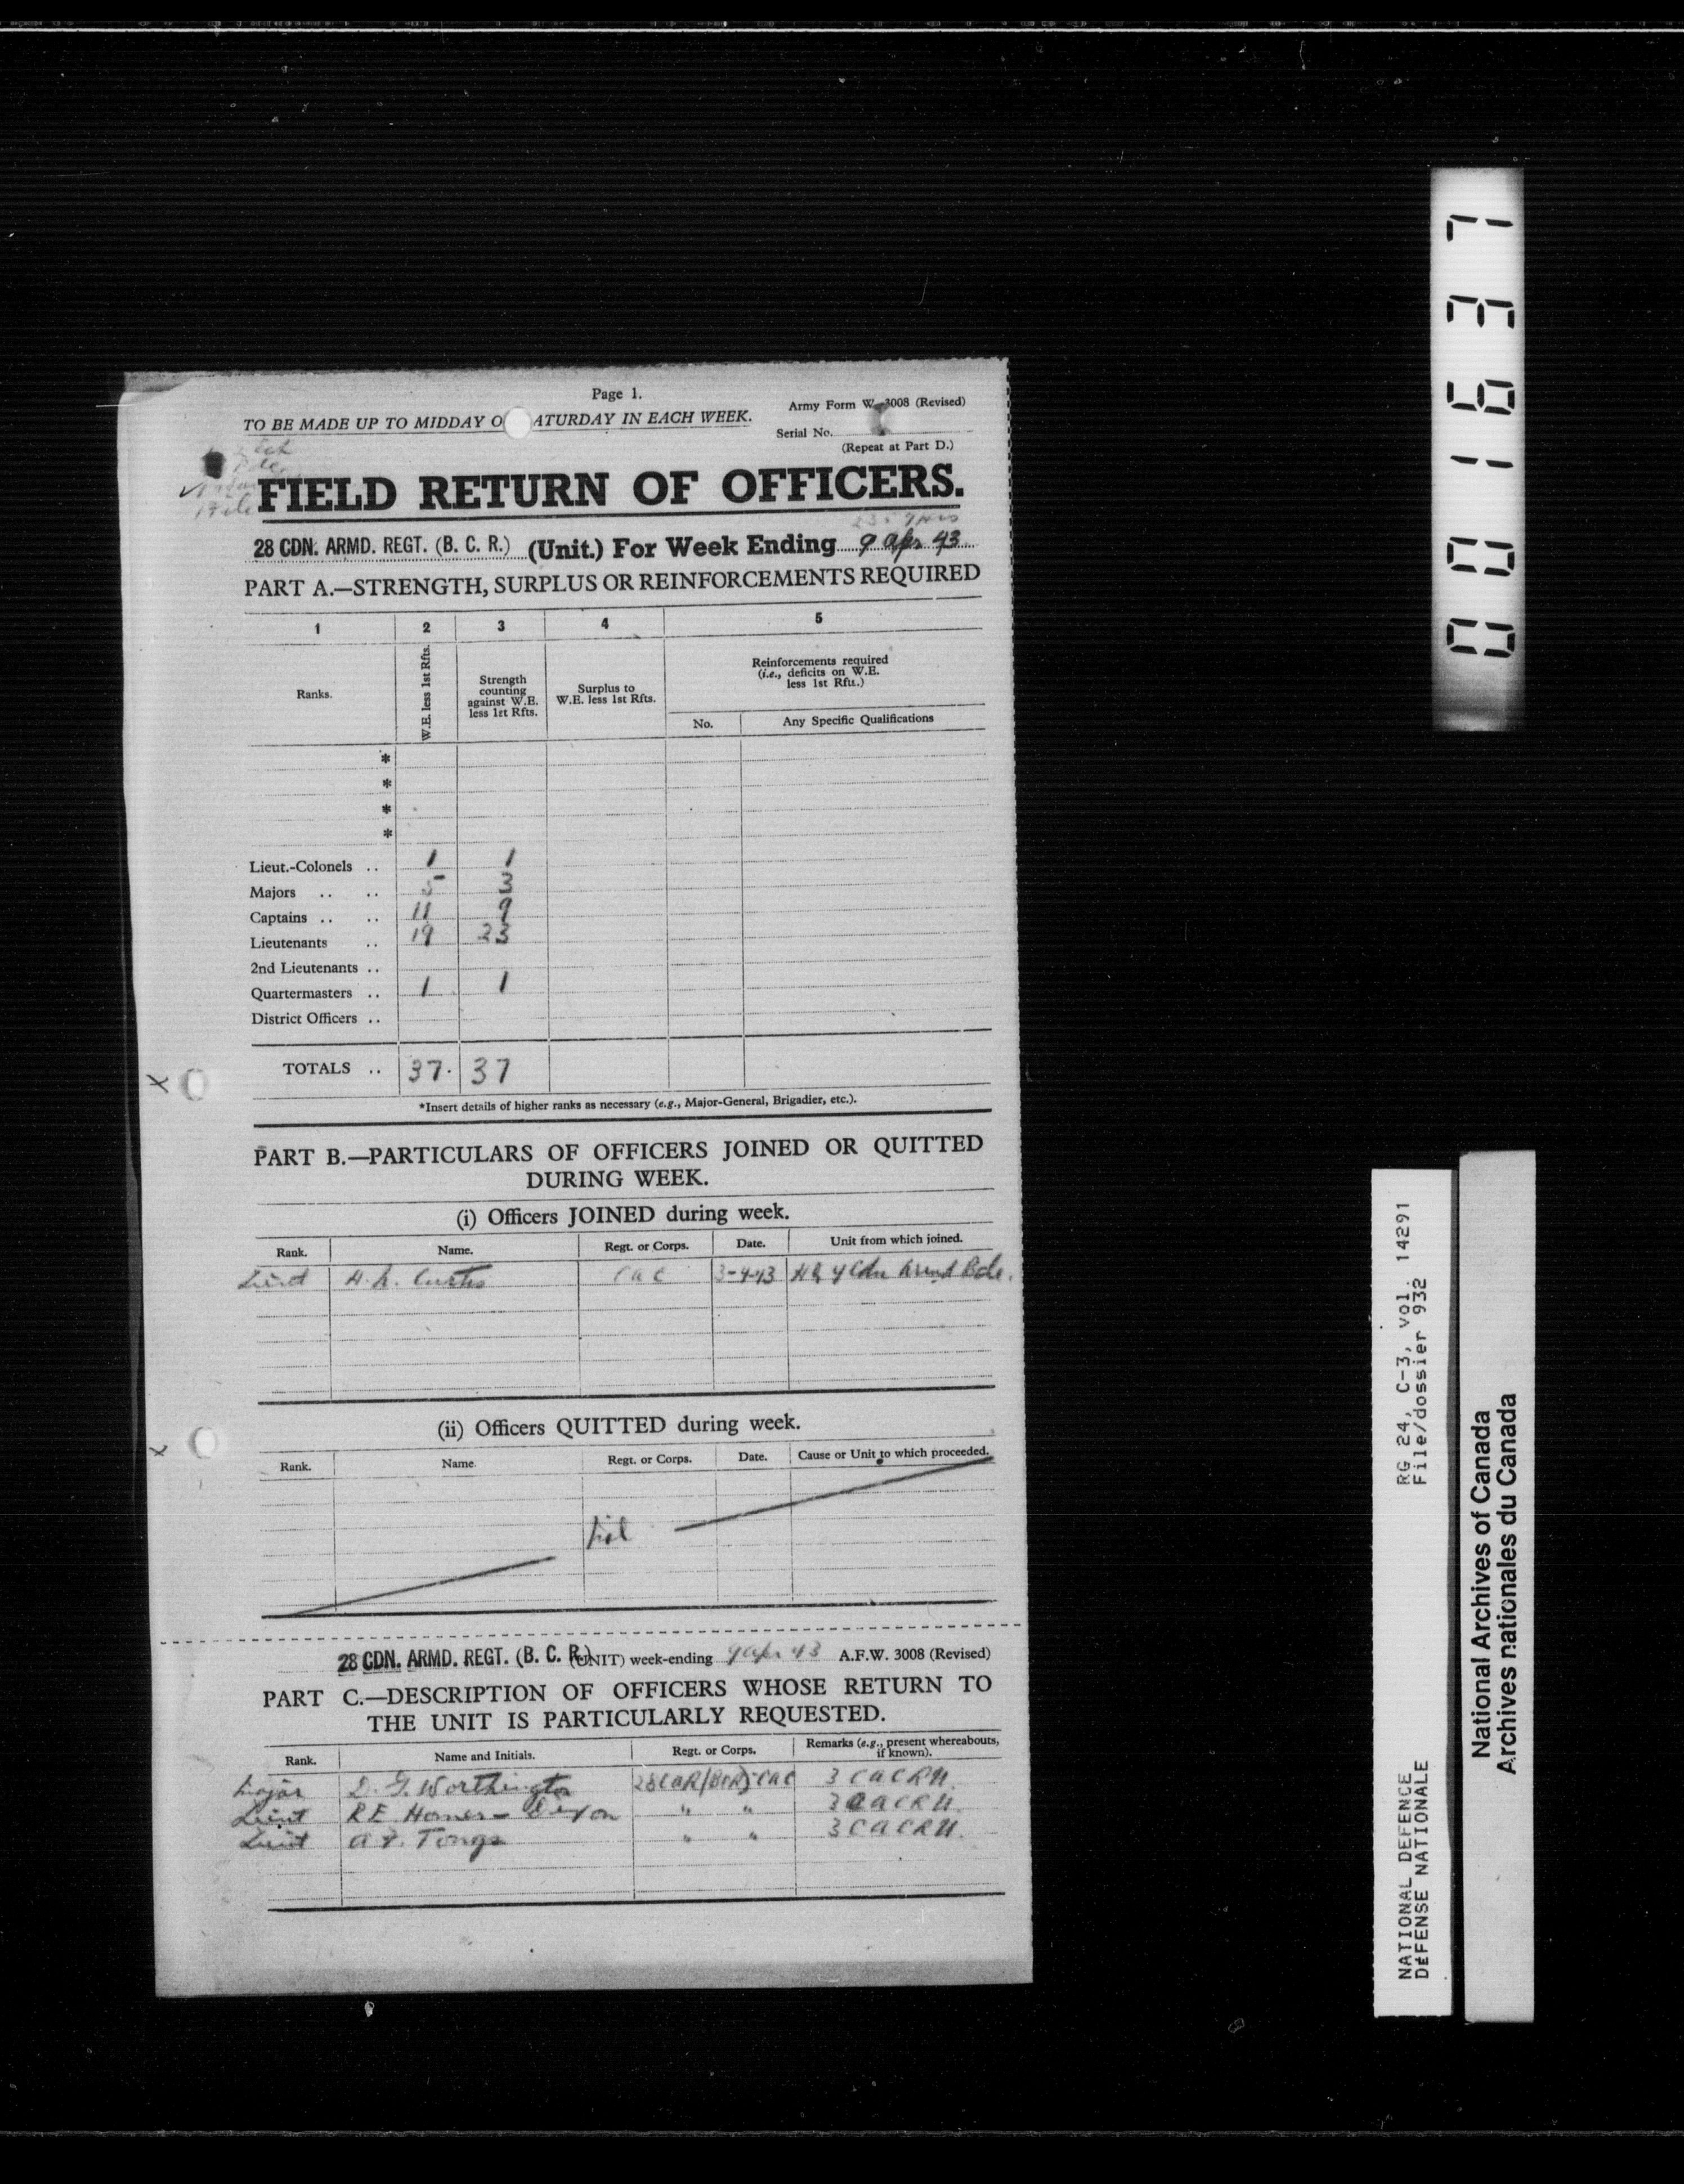 Page 1.
TO BE MADE UP TO MIDDAY O ATURDAY IN EACH WEEK.
Army Form W.3008 (Revised)
Serial No.
(Repeat at Part D.)
FIELD RETURN OF OFFICERS.
28 CDN. ARMD. REGT. (B. C. R.) (Unit.) For Week Ending 9 Apr 43
PART A.—STRENGTH, SURPLUS OR REINFORCEMENTS REQUIRED
1 2 3 4 5
Ranks.
W.E. less 1st Rfts.
Strength
counting
against W.E.
less 1st Rfts.
Surplus to
W.E. less 1st Rfts.
Reinforcements required
(i.e., deficits on W.E.
less 1st Rfts.)
No. Any Specific Qualifications
*
*
*
*
Lieut.-Colonels .. 1 1
Majors .. .. 5 3
Captains .. .. 11 9
Lieutenants .. 19 23
2nd Lieutenants ..
Quartermasters .. 1 1
District Officers ..
TOTALS .. 37. 37
*Insert details of higher ranks as necessary (e.g., Major-General, Brigadier, etc.).
PART B.—PARTICULARS OF OFFICERS JOINED OR QUITTED
DURING WEEK.
(i) Officers JOINED during week.
Rank. Name. Regt. or Corps. Date. Unit from which joined.
Lieut Curtis CAC 3-4-43 HQ 4 Cdn Armd Bde.
(ii) Officers QUITTED during week.
Rank. Name. Regt. or Corps. Date. Cause or Unit to which proceeded.
Nil
28 CDN. ARMD. REGT. (B. C. R.) (UNIT) week-ending 9 Apr 43 A.F.W. 3008 (Revised)
PART C.—DESCRIPTION OF OFFICERS WHOSE RETURN TO
THE UNIT IS PARTICULARLY REQUESTED.
Rank. Name and Initials. Regt. or Corps. Remarks (e.g., present whereabouts,
if known).
Major D. G. Worthington 28 CAR (BCR) CAC 3 CACRU.
Lieut R.E. Homer-Dixon " " 3 CACRU.
Lieut Tongs " " 3 CACRU.
001637
RG 24, C-3, vol. 14291
File/dossier 932
NATIONAL DEFENCE
DÉFENSE NATIONALE
National Archives of Canada
Archives nationales du Canada